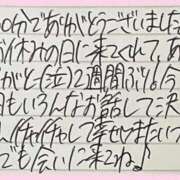 00分でありがとうございました
お休みの日に来てくれて、あ
がと(泣)2週間ぶり
もいろんなお話して沢
イチャイチャして幸せ
ても会いに来てね♪